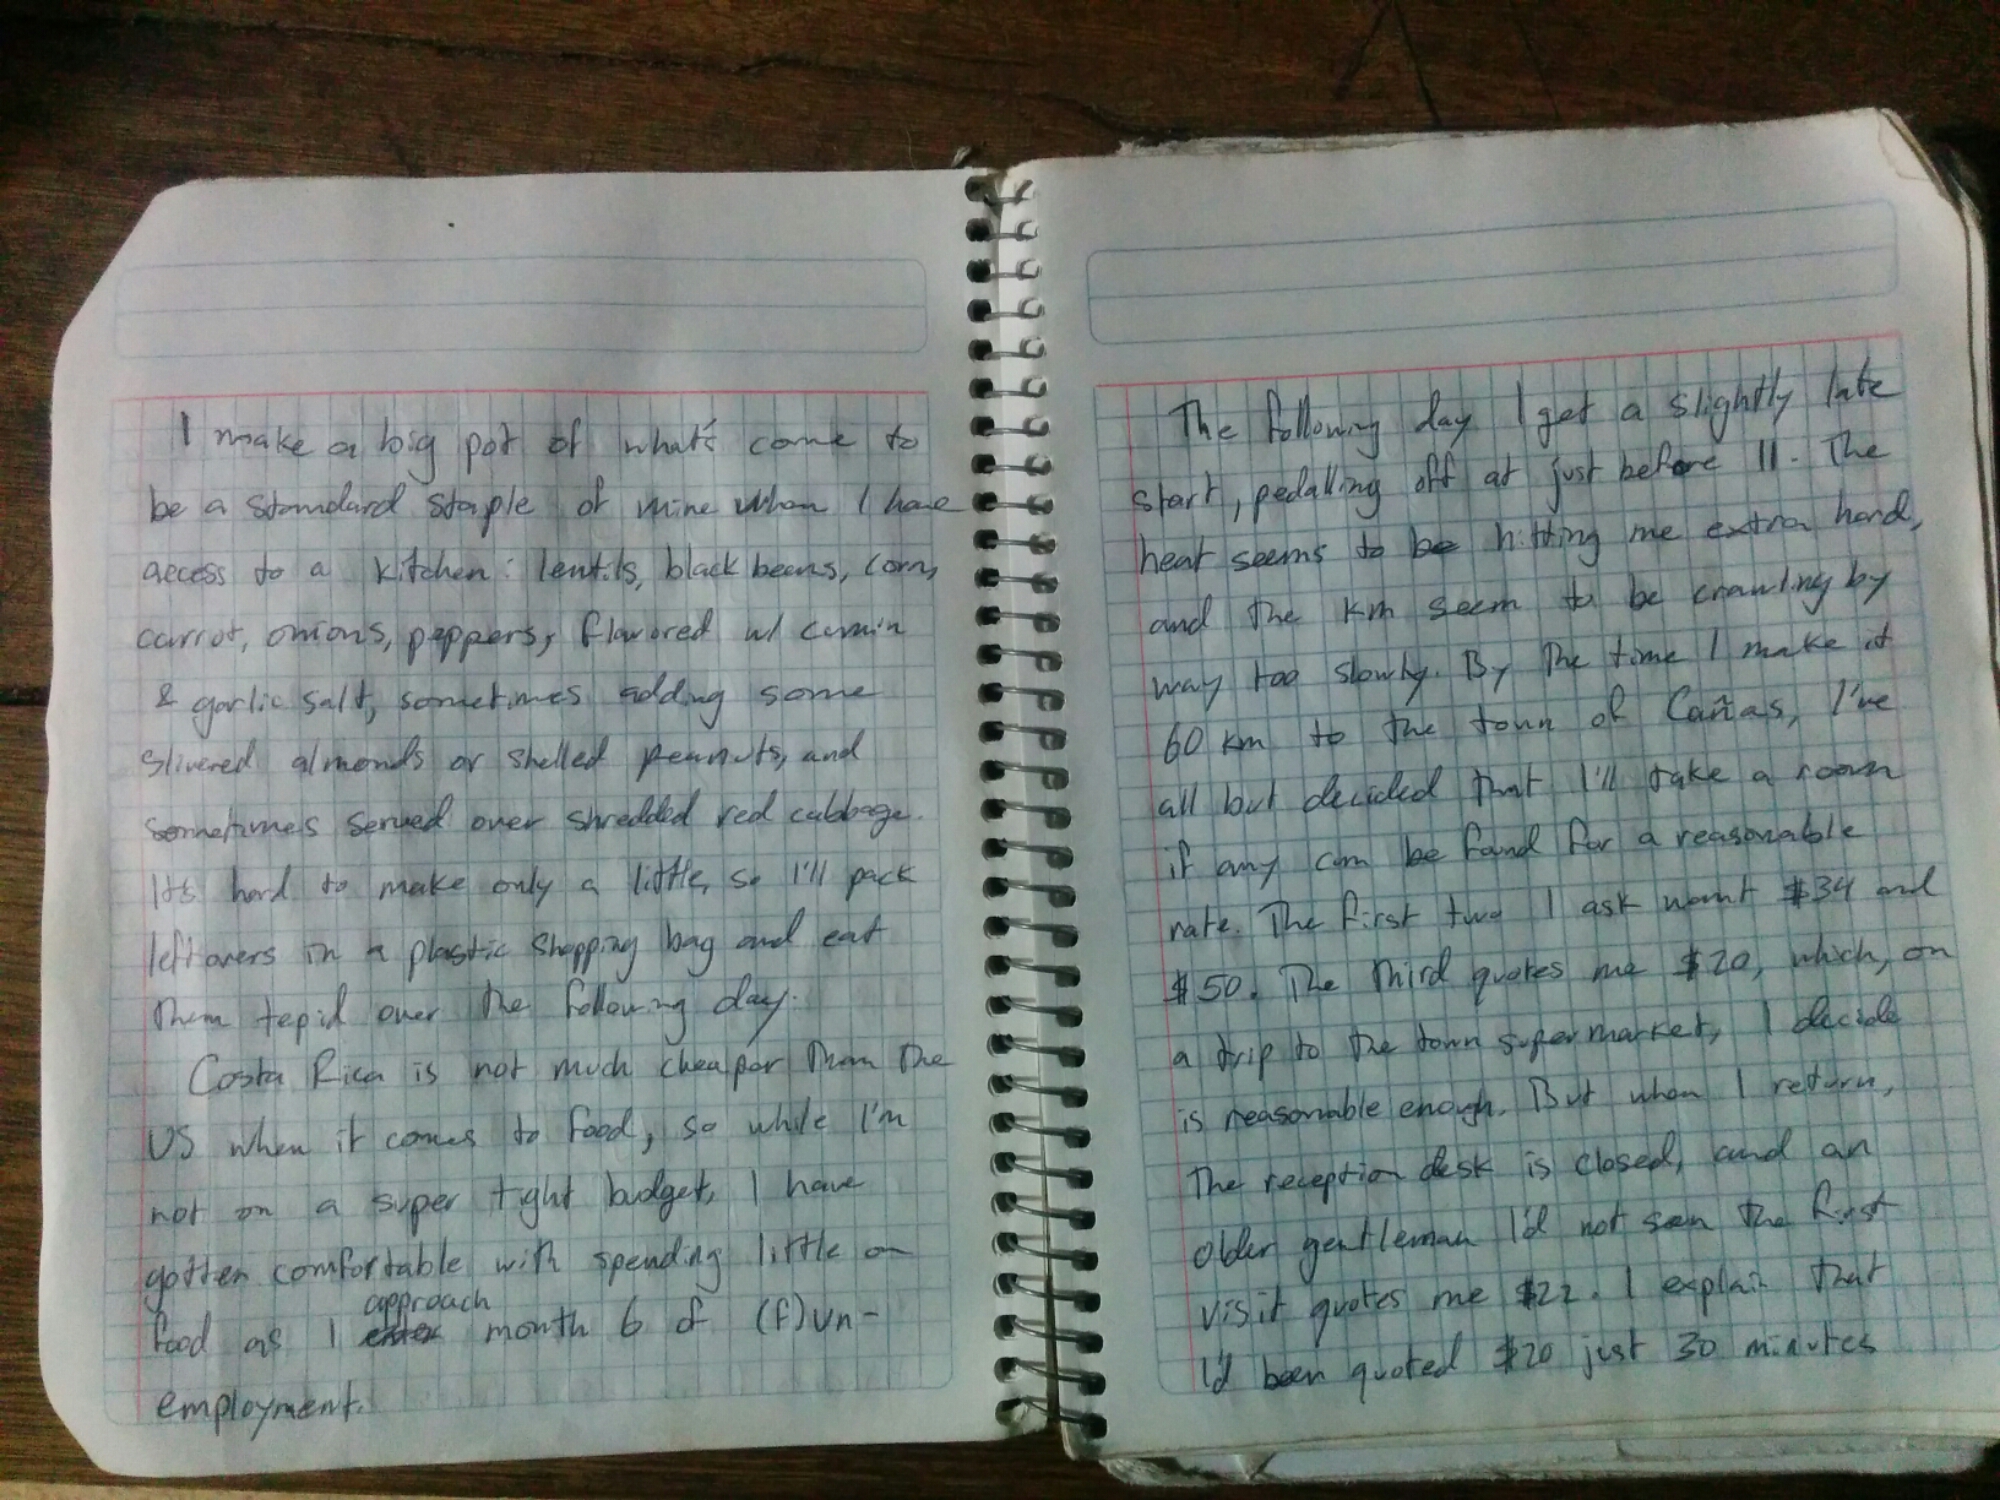 I make a big pot of what's come to
be a standard staple of mine when I have
access to a kitchen: lentils, black beans, corn,
carrot, onions, peppers, flavored w/ cumin
& garlic salt, sometimes adding some
slivered almonds or shelled peanuts, and
sometimes served over shredded red cabbage.
It's hard to make only a little, so I'll pack
leftovers in a plastic shopping bag and eat
them tepid over the following day.
Costa Rica is not much cheaper than the
US when it comes to food, so while I'm
not on a super tight budget, I have
gotten comfortable with spending little on
food as I approach month 6 of (f)un-
employment.
The following day I get a slightly late
start, pedalling off at just before 11. The
heat seems to be hitting me extra hard,
and the km seem to be crawling by
way too slowly. By the time I make it
60 km to the town of Cañas, I've
all but decided that I'll take a room
if any can be found for a reasonable
rate. The first two I ask want $34 and
$50. The third quotes me $20, which, on
a trip to the town supermarket, I decide
is reasonable enough. But when I return,
the reception desk is closed, and an
older gentleman I'd not seen the first
visit quotes me $22. I explain that
I'd been quoted $20 just 30 minutes